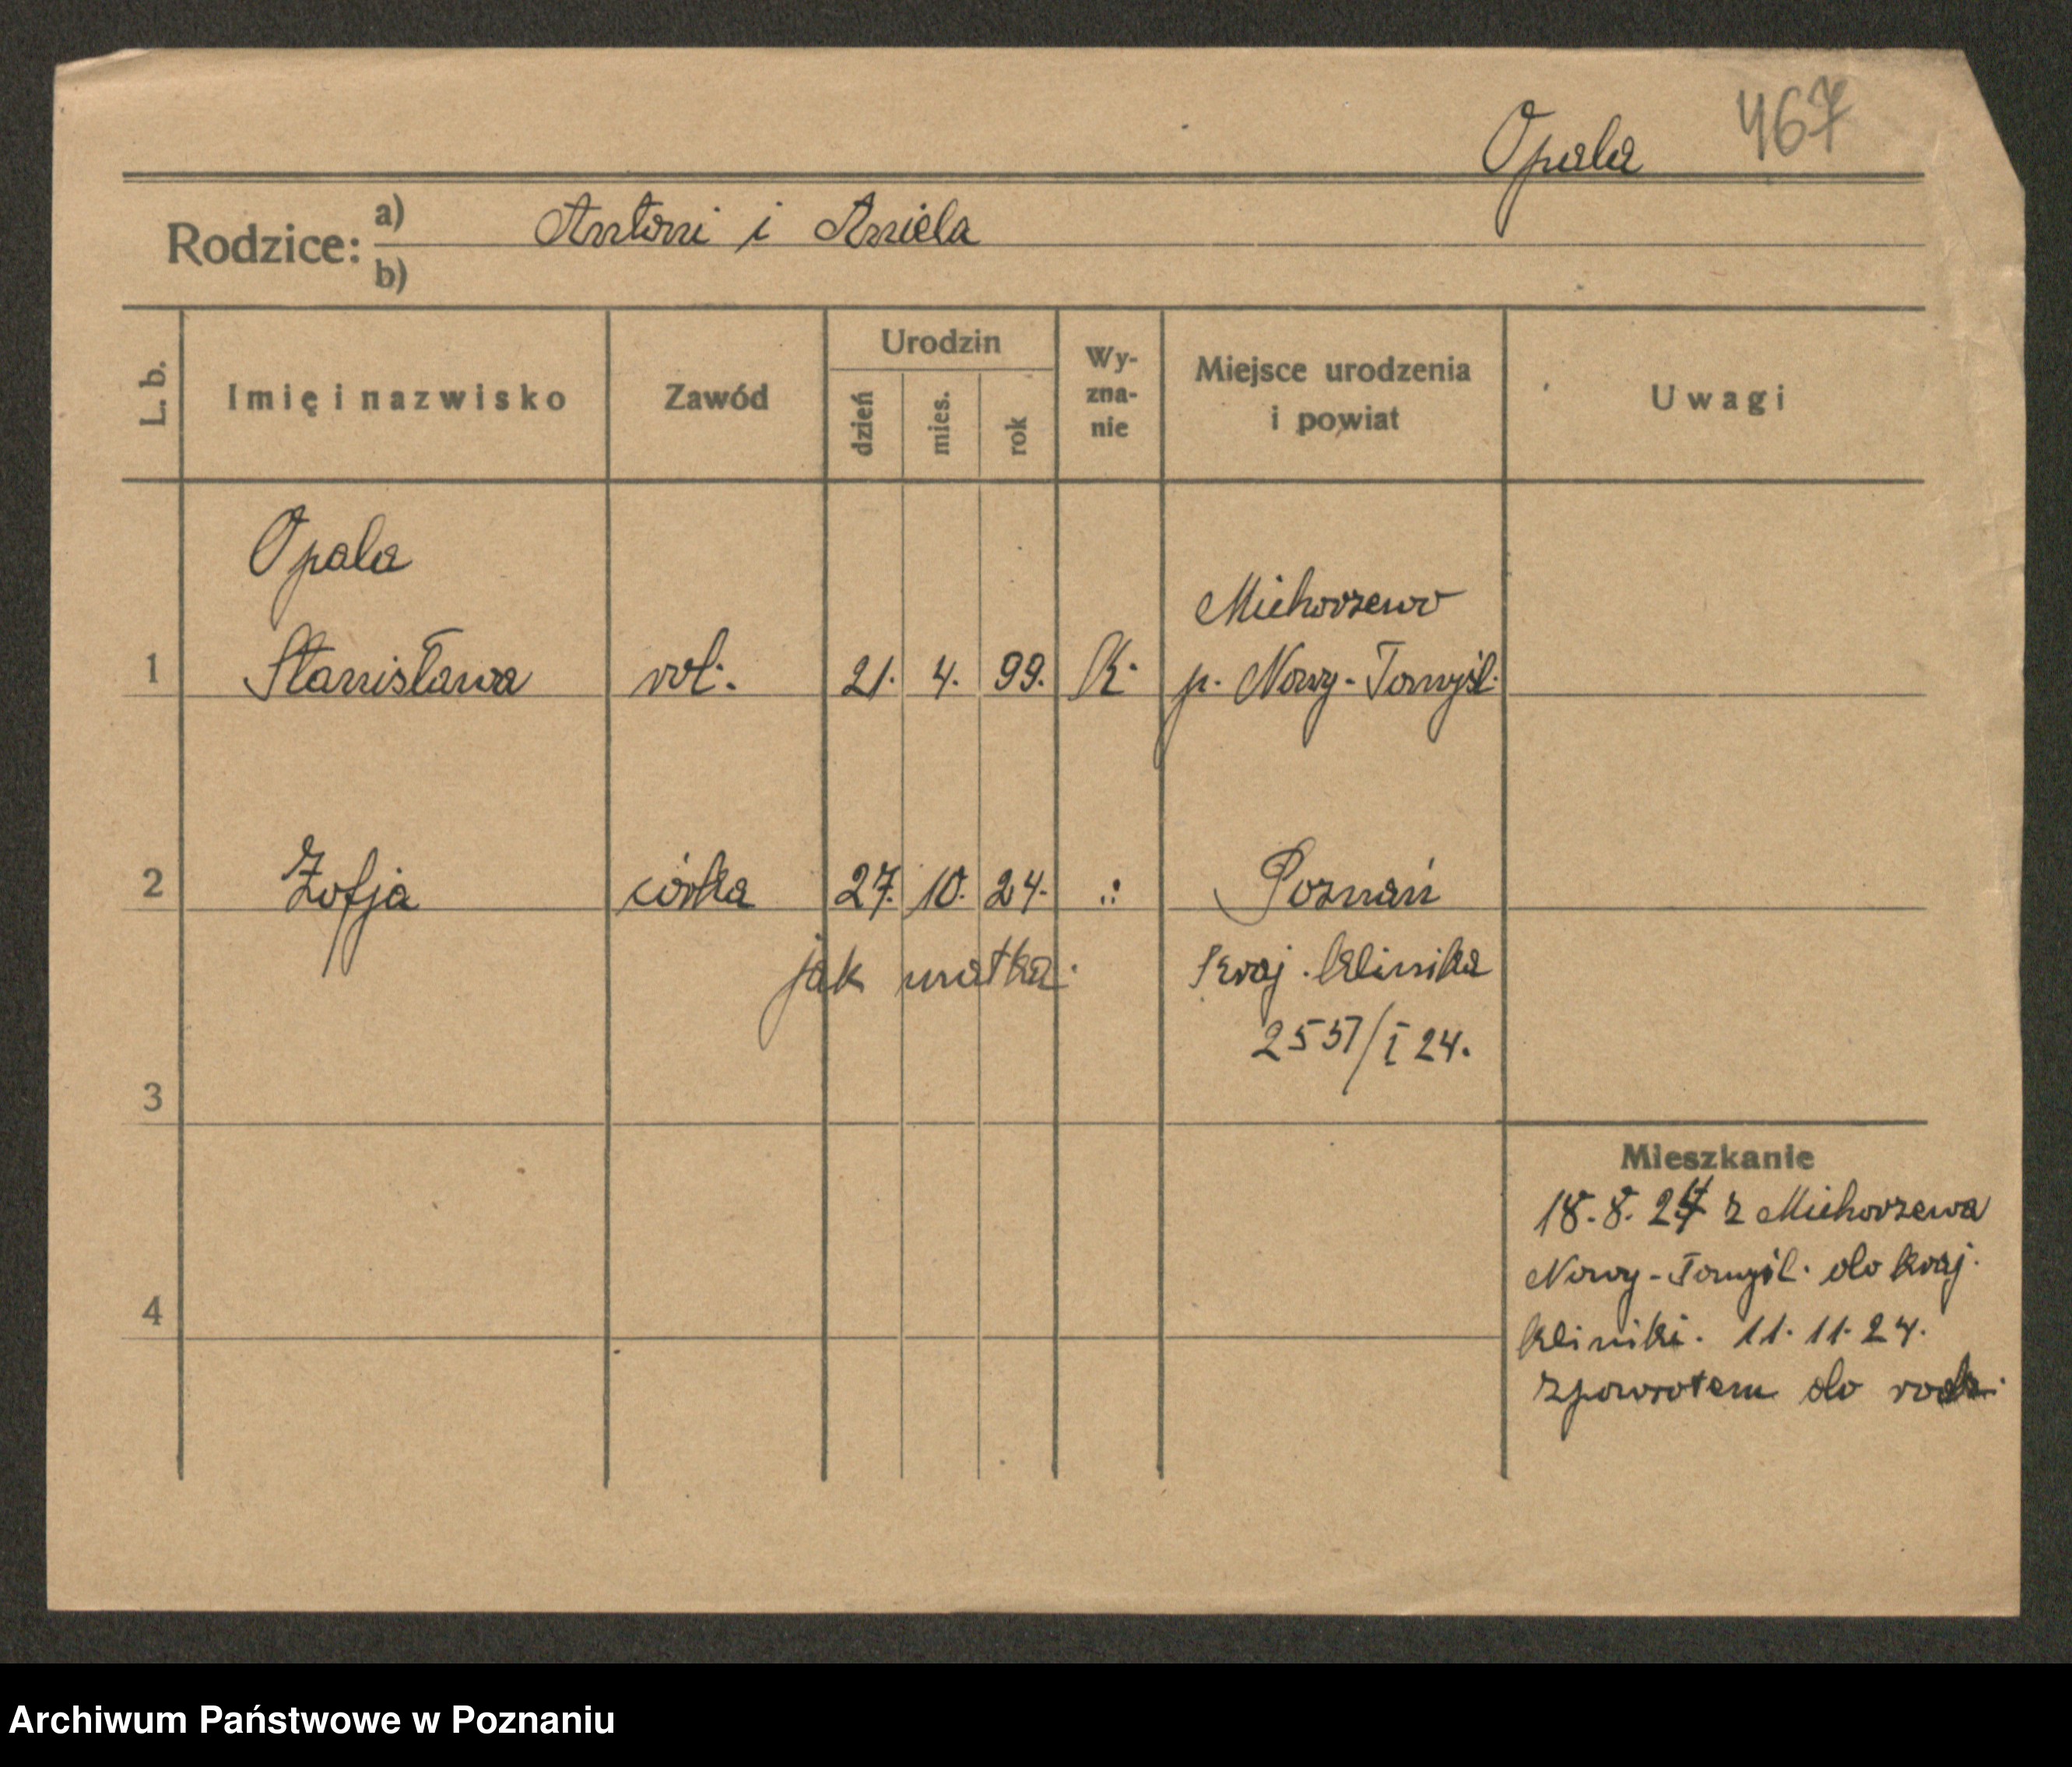 467
Opala
Rodzice: a) Antoni i Aniela
b)
L. b. Imię i nazwisko Zawód Urodzin dzień mies. rok Wy-zna-nie Miejsce urodzenia i powiat Uwagi
Opala
Michorzewo
1 Stanisława rol. 21. 4. 99. K. p. Nowy-Tomyśl.
2 Zofja córka 27. 10. 24. .: Poznań
jak matka. Kraj. klinika
2557/I 24.
3
Mieszkanie
18.8.24 z Michorzewa
Nowy-Tomyśl. do kraj.
4
kliniki. 11.11.24.
zpowrotem do rodz.
Archiwum Państwowe w Poznaniu